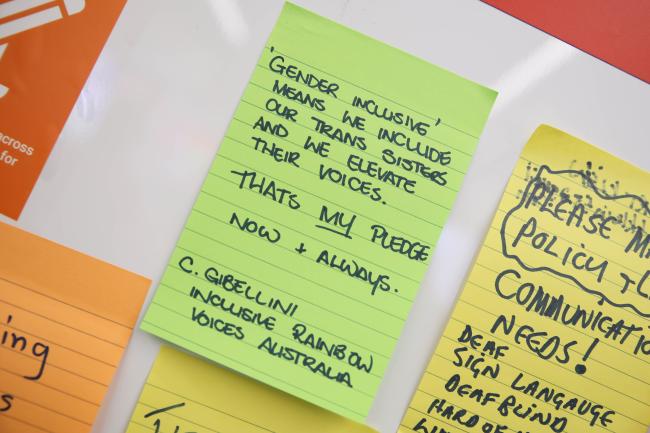 across
for
'GENDER INCLUSIVE'
MEANS WE INCLUDE
OUR TRANS SISTERS
AND WE ELEVATE
THEIR VOICES.
THATS MY PLEDGE
NOW + ALWAYS.
C. GIBELLINI
INCLUSIVE RAINBOW
VOICES AUSTRALIA
PLEASE
POLICY
COMMUNICATIO
NEEDS!
DEAF
SIGN LANGAUGE
DEAFBLIND
HARD OF
ing
s